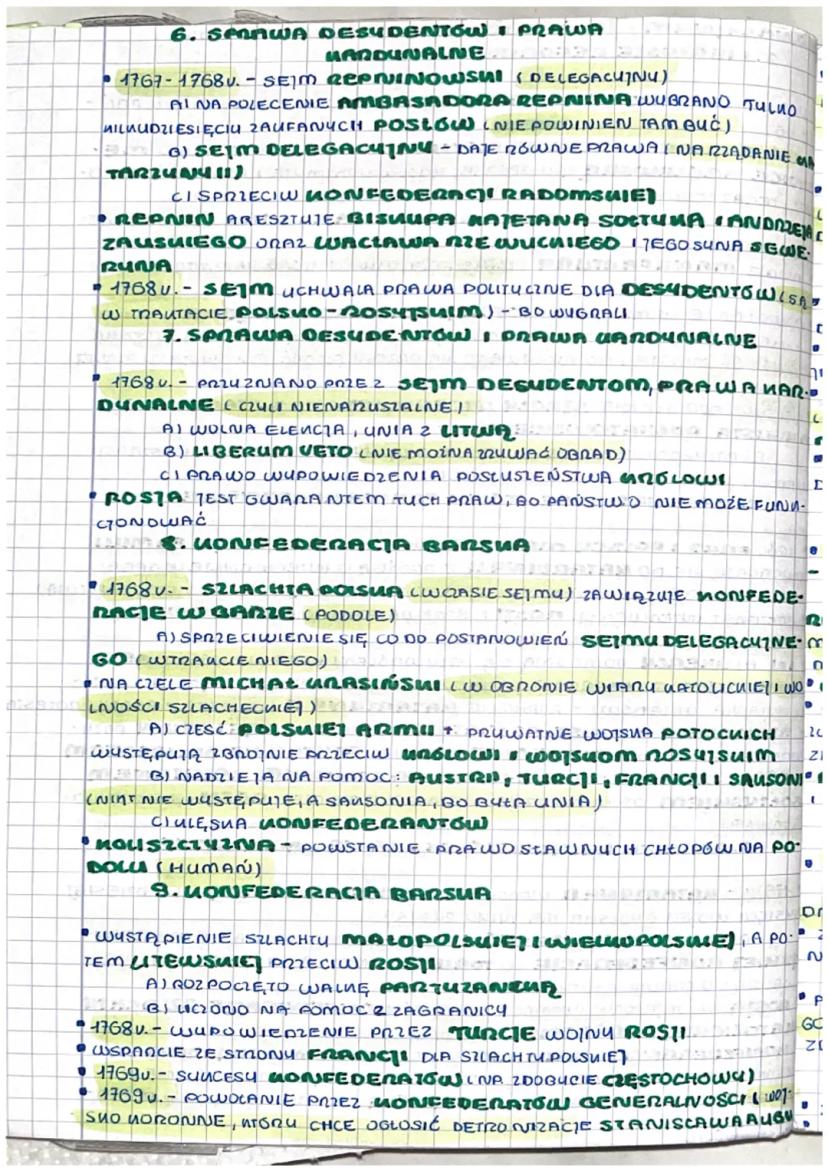 6. SPRAWA DESYDENTÓW I PRAWA
KARDYNALNE
• 1767-1768r. - SEJM REPNINOWSKI (DELEGACYJNY)
A) NA POLECENIE AMBASADORA REPNINA WYBRANO TYLKO
KILKUDZIESIĘCIU ZAUFANYCH POSŁÓW (NIE POWINIEN TAM BYĆ)
B) SEJM DELEGACYJNY - DAJE RÓWNE PRAWA (NA RZĄDANIE KA
TARZYNY II)
C) SPRZECIW KONFEDERACJI RADOMSKIEJ
• REPNIN ARESZTUJE BISKUPA KAJETANA SOŁTYKA I ANDRZEJA
ZAŁUSKIEGO ORAZ WACŁAWA RZEWUCKIEGO I JEGO SYNA SEWE-
RYNA
• 1768r. - SEJM UCHWALA PRAWA POLITYCZNE DLA DESYDENTÓW (SĄ
W TRAKTACIE POLSKO-ROSYJSKIM) - BO WYGRALI
7. SPRAWA DESYDENTÓW I PRAWA KARDYNALNE
• 1768r. - PRZYZNANO PRZEZ SEJM DESYDENTOM, PRAWA KAR-
DYNALNE (CZYLI NIENARUSZALNE)
A) WOLNA ELEKCJA, UNIA Z LITWĄ
B) LIBERUM VETO (NIE MOŻNA ZRYWAĆ OBRAD)
C) PRAWO WYPOWIEDZENIA POSŁUSZEŃSTWA KRÓLOWI
• ROSJA JEST GWARANTEM TYCH PRAW, BO PAŃSTWO NIE MOŻE FUNK-
CJONOWAĆ
8. KONFEDERACJA BARSKA
• 1768r. - SZLACHTA POLSKA (W CZASIE SEJMU) ZAWIĄZUJE KONFEDE-
RACJE W BARZE (PODOLE)
A) SPRZECIWIENIE SIĘ CO DO POSTANOWIEŃ SEJMU DELEGACYJNE-
GO (W TRAKCIE NIEGO)
• NA CZELE MICHAŁ KRASIŃSKI (W OBRONIE WIARY KATOLICKIEJ I WO
LNOŚCI SZLACHECKIEJ)
A) CZĘŚĆ POLSKIEJ ARMII + PRYWATNE WOJSKA POTOCKICH
WYSTĘPUJĄ ZBROJNIE PRZECIW KRÓLOWI I WOJSKOM ROSYJSKIM
B) NADZIEJA NA POMOC: AUSTRII, TURCJI, FRANCJI I SAKSONI
(NIKT NIE WYSTĘPUJE, A SAKSONIA, BO BYŁA UNIA)
C) KLĘSKA KONFEDERANTÓW
• KOLISZCZYZNA - POWSTANIE PRAWOSŁAWNYCH CHŁOPÓW NA PO-
DOLU (HUMAŃ)
9. KONFEDERACJA BARSKA
• WYSTĄPIENIE SZLACHTY MAŁOPOLSKIEJ I WIELKOPOLSKIEJ, A PO-
TEM LITEWSKIEJ PRZECIW ROSJI
A) ROZPOCZĘTO WALKĘ PARTYZANCKĄ
B) LICZONO NA POMOC Z ZAGRANICY
• 1768r. - WYPOWIEDZENIE PRZEZ TURCJE WOJNY ROSJI
• WSPARCIE ZE STRONY FRANCJI DLA SZLACHTY POLSKIEJ
• 1769r. - SUKCESY KONFEDERATÓW (NP. ZDOBYCIE CZĘSTOCHOWY)
• 1769r. - POWOŁANIE PRZEZ KONFEDERATÓW GENERALNOŚCI (WOJ-
SKO KORONNE, KTÓRY CHCE OGŁOSIĆ DETRONIZACJE STANISŁAWA AUGU